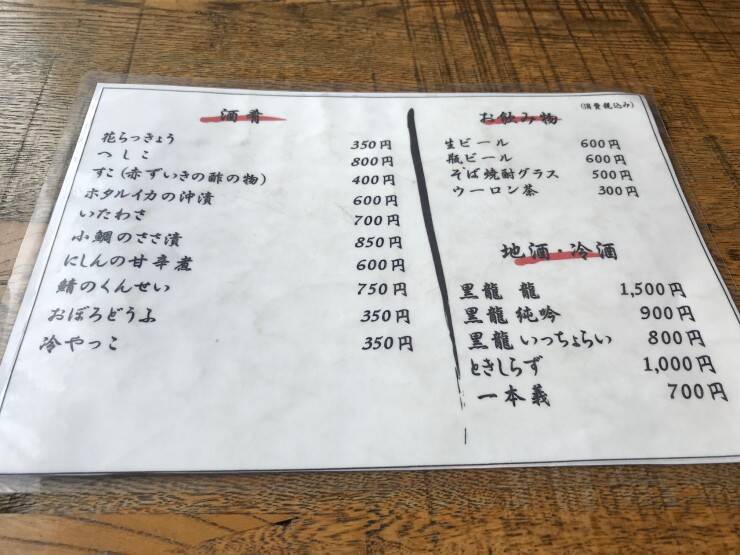 酒肴
花らっきょう 350円
へしこ 800円
すこ(赤ずいきの酢の物) 400円
ホタルイカの沖漬 600円
いたわさ 700円
小鯛のささ漬 850円
にしんの甘辛煮 600円
鯖のくんせい 750円
おぼろどうふ 350円
冷やっこ 350円
(消費税込み)
お飲み物
生ビール 600円
瓶ビール 600円
そば焼酎グラス 500円
ウーロン茶 300円
地酒・冷酒
黒龍 龍 1,500円
黒龍 純吟 900円
黒龍 いっちょらい 800円
ときしらず 1,000円
一本義 700円